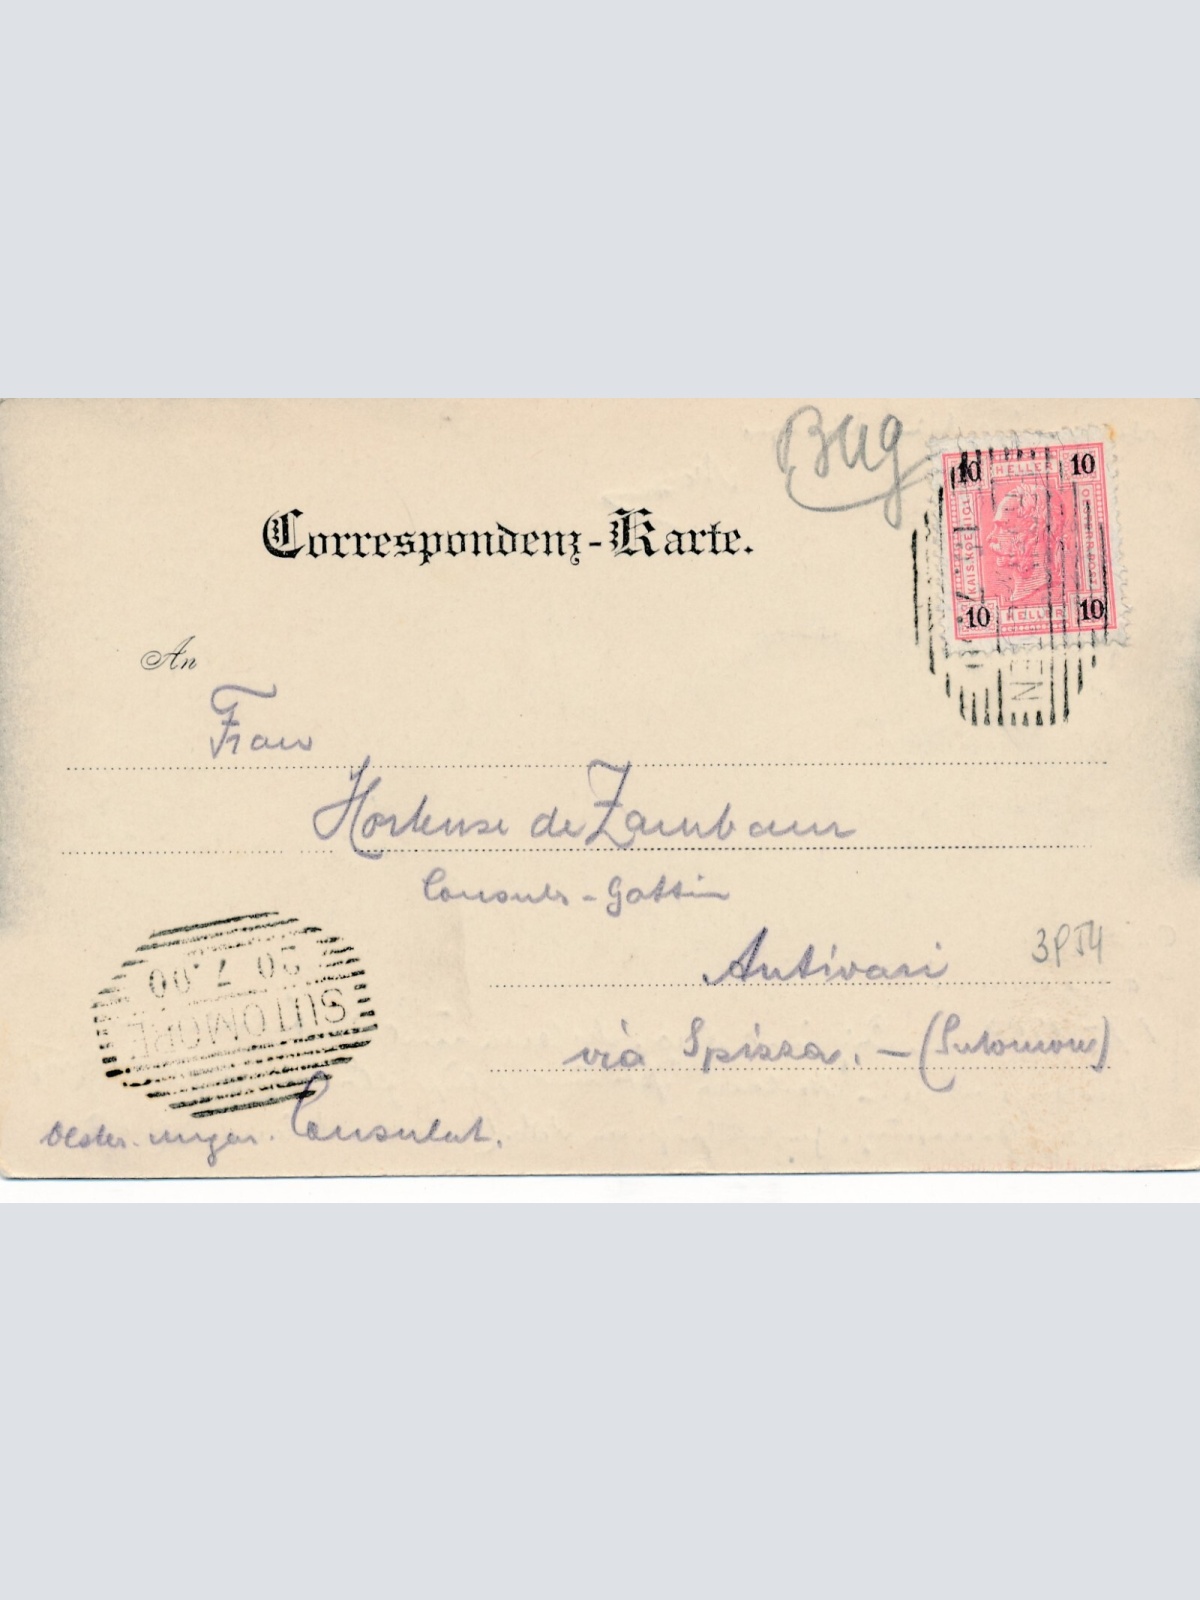 Bug
10 HELLER 10
KAIS.KOE
10 HELLER 10
Correspondenz-Karte.
An
Frau
Hortense de Zambaur
Consuls-Gattin
Antivari
3P54
via Spizza. – (Sutomore)
20 7.00
SUTOMORE
Oester. ungar. Consulat.